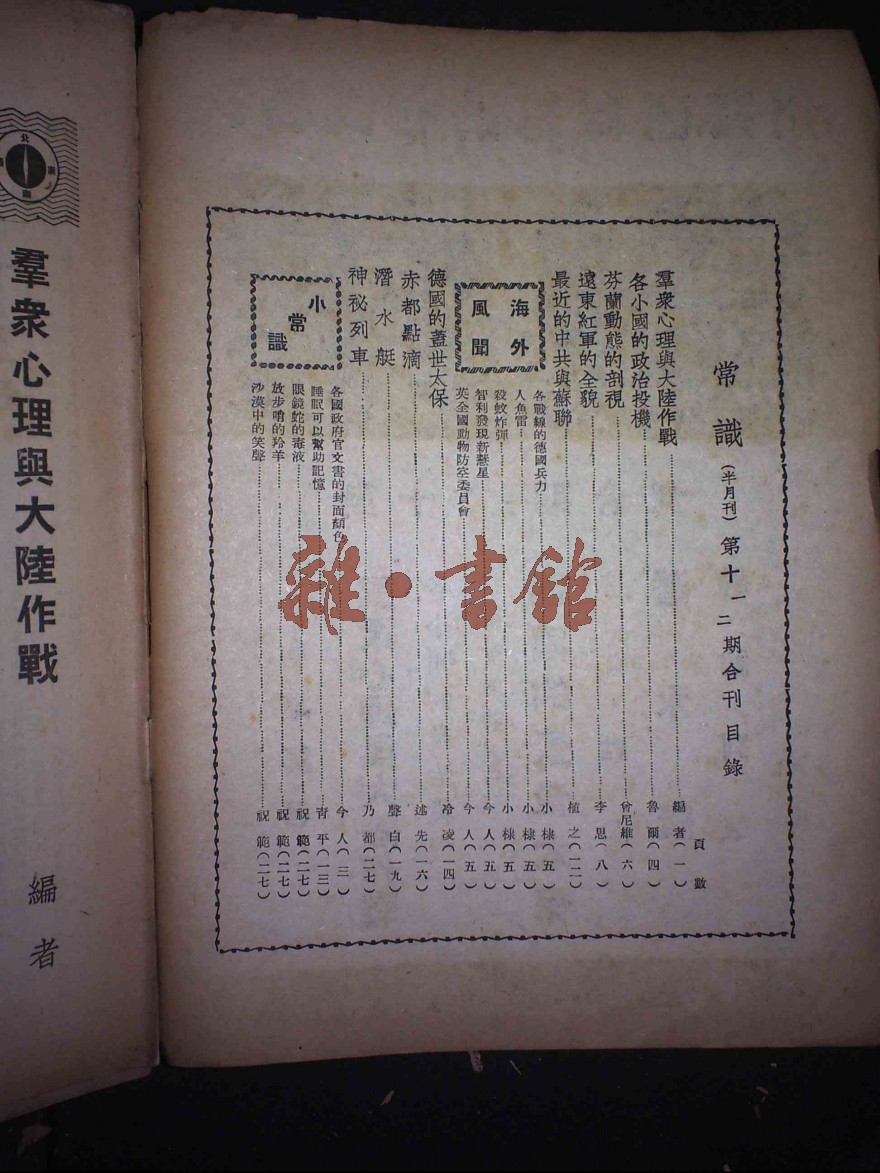 常識(半月刊)第十一二期合刊目錄
頁數
羣衆心理與大陸作戰 編者(一)
各小國的政治投機 魯爾(四)
芬蘭動態的剖視 曾尼維(六)
遠東紅軍的全貌 李思(八)
最近的中共與蘇聯 植之(一二)
海外風聞
各戰線的德國兵力 小棣(五)
人魚雷 小棣(五)
殺蚊炸彈 小棣(五)
智利發現新彗星 今人(五)
英全國動物防空委員會 今人(五)
德國的蓋世太保 冷凌(一四)
赤都點滴 述先(一六)
潛水艇 聲白(一九)
神祕列車 乃都(二七)
小常識
各國政府官文書的封面顏色 今人(三)
睡眠可以幫助記憶 青平(一三)
眼鏡蛇的毒液 祝範(二七)
放步哨的羚羊 祝範(二七)
沙漠中的笑聲 祝範(二七)
雜·書館
北
南
羣衆心理與大陸作戰
編者